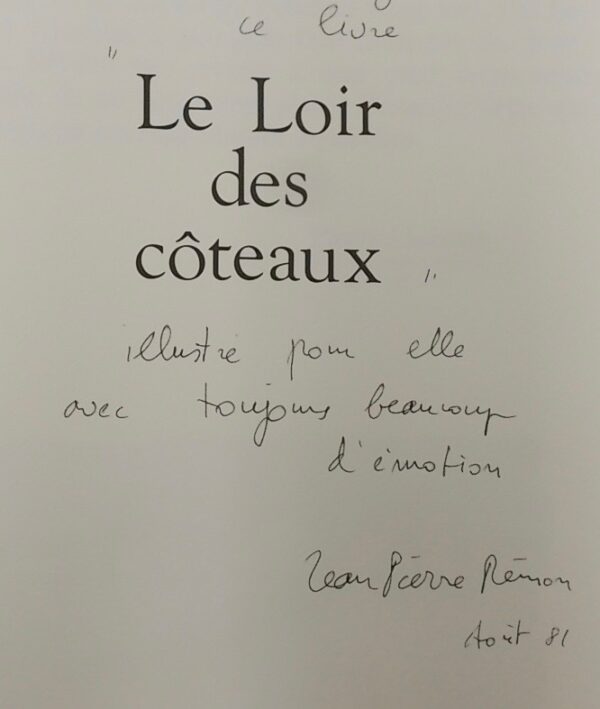 ce livre
"Le Loir
des
côteaux"
illustré pour elle
avec toujours beaucoup
d'émotion
Jean Pierre Rémon
Août 81